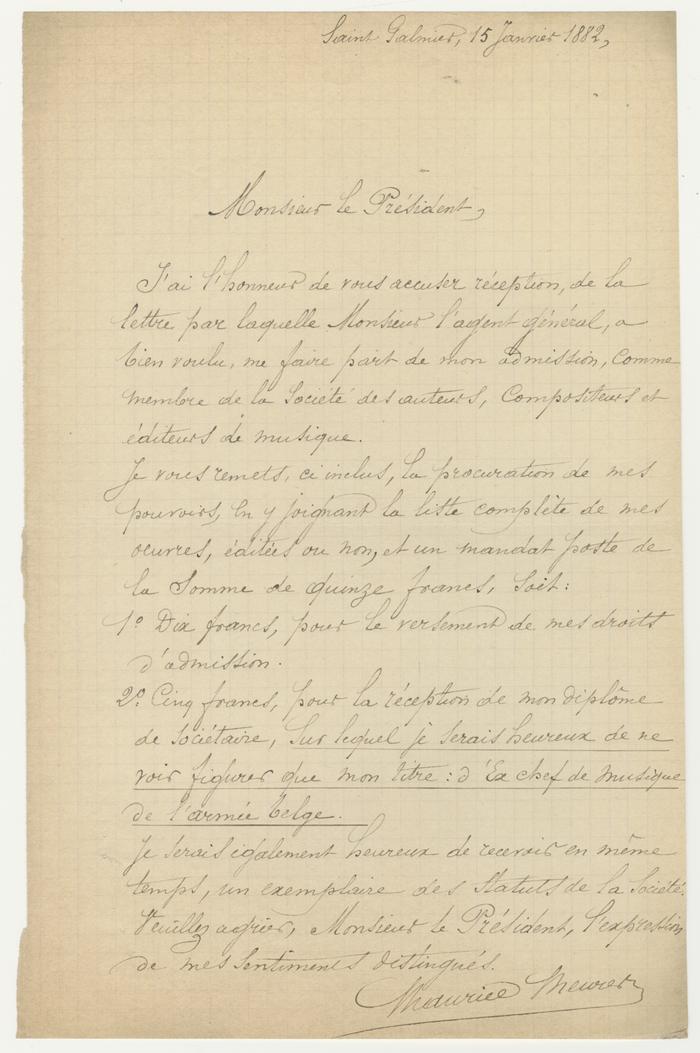 Saint Galmier, 15 Janvier 1882,
Monsieur le Président,
J'ai l'honneur de vous accuser réception, de la
lettre par laquelle Monsieur l'agent général, a
bien voulu, me faire part de mon admission, comme
membre de la Société des auteurs, Compositeurs et
éditeurs de musique.
Je vous remets, ci inclus, la procuration de mes
pouvoirs, en y joignant la liste complète de mes
oeuvres, éditées ou non, et un mandat poste de
la Somme de quinze francs, Soit:
1º Dix francs, pour le versement de mes droits
d'admission.
2º Cinq francs, pour la réception de mon diplôme
de Sociétaire, Sur lequel je serais heureux de ne
voir figurer que mon titre: d'Ex chef de musique
de l'armée belge.
Je serais également heureux de recevoir en même
temps, un exemplaire des Statuts de la Société.
Veuillez agréer, Monsieur le Président, l'expression
de mes sentiments distingués.
Maurice Meurer